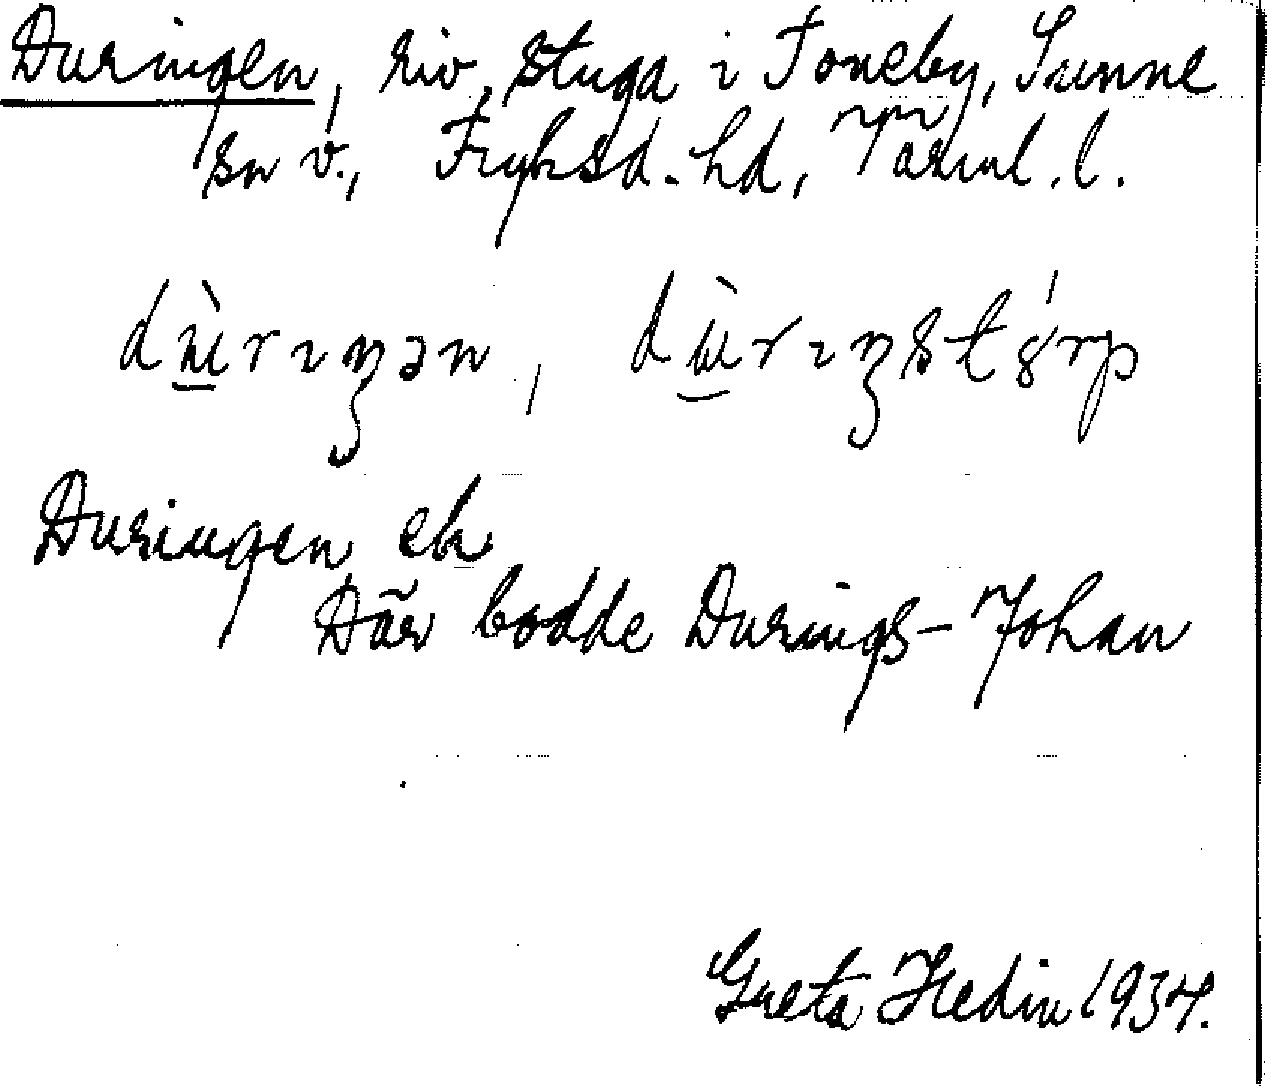 Duringen, riv. stuga i Toneby, Sunne
sn v., Fryksd. hd, Värml. l.
Duringen ek
Där bodde Durings-Johan
Greta Hedin 1934.